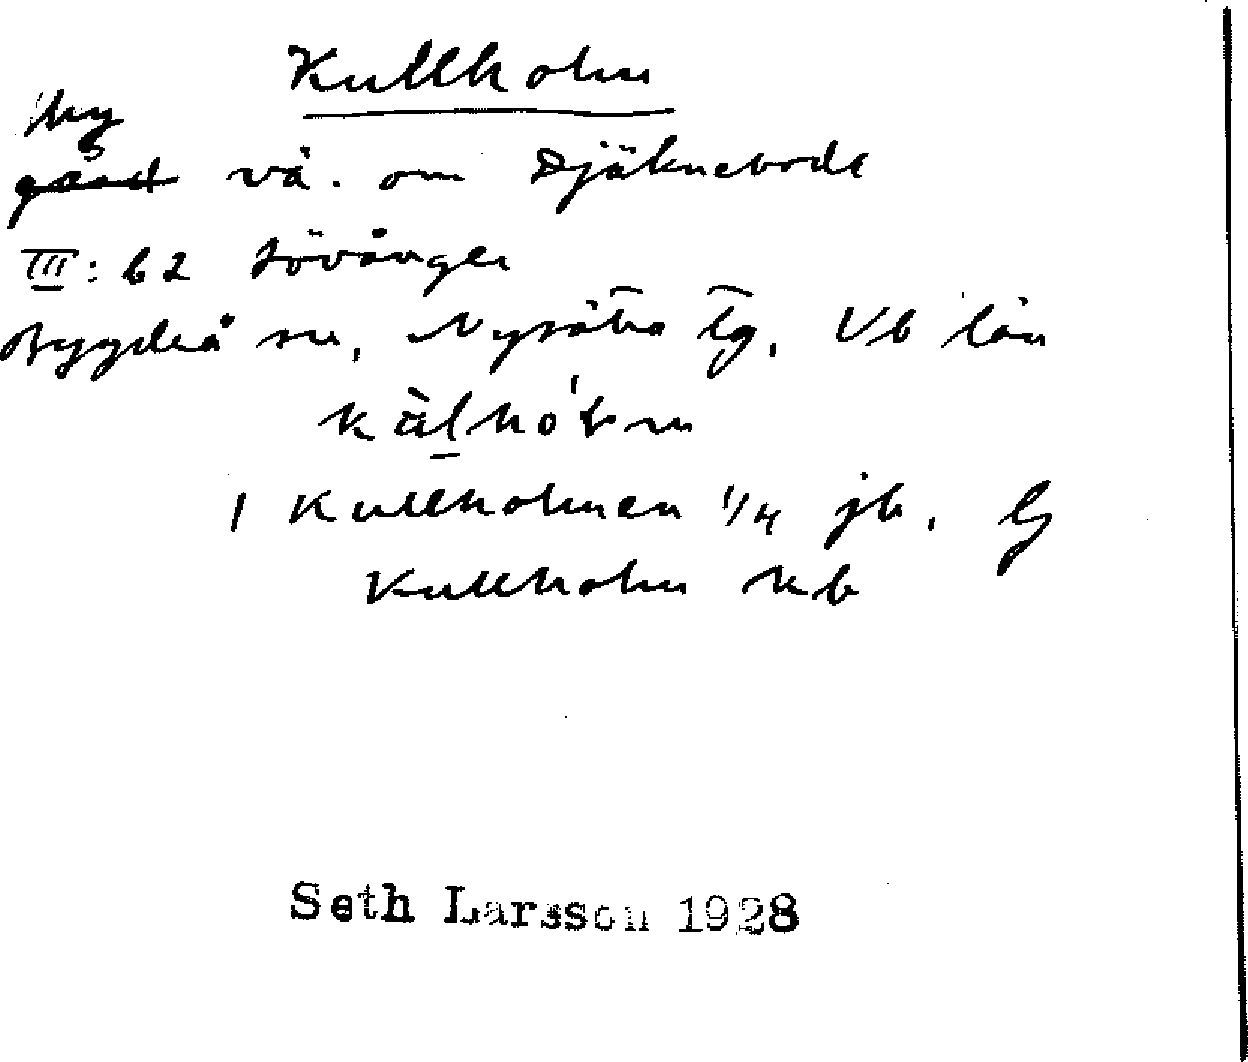 Kullholm
by
gård vä. om Djäknebode
III:62 Lövånger
Bygdeå sn, Nysätra tg, Vb län
1 Kullholmen 1/4 jb.
Kullholm kb
Seth Larsson 1928